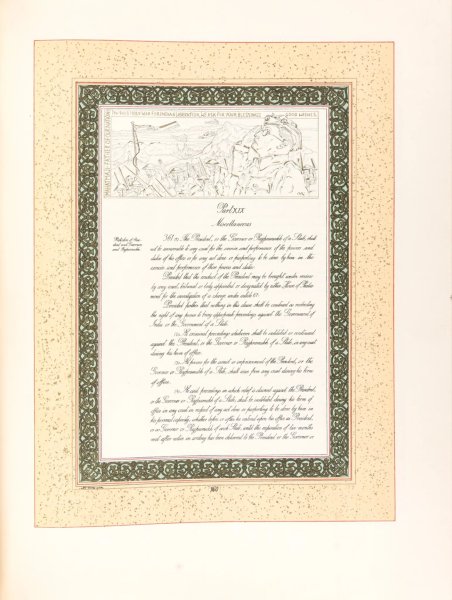 IN THIS HOLY WAR FOR INDIA'S LIBERATION, WE ASK FOR YOUR BLESSINGS
GOOD WISHES
MAHATMAJI, FATHER OF OUR NATION
Part XIX
Miscellaneous
361. (1) The President, or the Governor or Rajpramukh of a State, shall
not be answerable to any court for the exercise and performance of the powers and
duties of his office or for any act done or purporting to be done by him in the
exercise and performance of those powers and duties:
Provided that the conduct of the President may be brought under review
by any court, tribunal or body appointed or designated by either House of Parlia-
ment for the investigation of a charge under article 61:
Provided further that nothing in this clause shall be construed as restricting
the right of any person to bring appropriate proceedings against the Government of
India or the Government of a State.
(2) No criminal proceedings whatsoever shall be instituted or continued
against the President, or the Governor or Rajpramukh of a State, in any court
during his term of office.
(3) No process for the arrest or imprisonment of the President, or the
Governor or Rajpramukh of a State, shall issue from any court during his term
of office.
(4) No civil proceedings in which relief is claimed against the President,
or the Governor or Rajpramukh of a State, shall be instituted during his term of
office in any court in respect of any act done or purporting to be done by him in
his personal capacity, whether before or after he entered upon his office as President,
or as Governor or Rajpramukh of such State, until the expiration of two months
next after notice in writing has been delivered to the President or the Governor or
Protection of Pres-
ident and Governors
and Rajpramukhs.
160